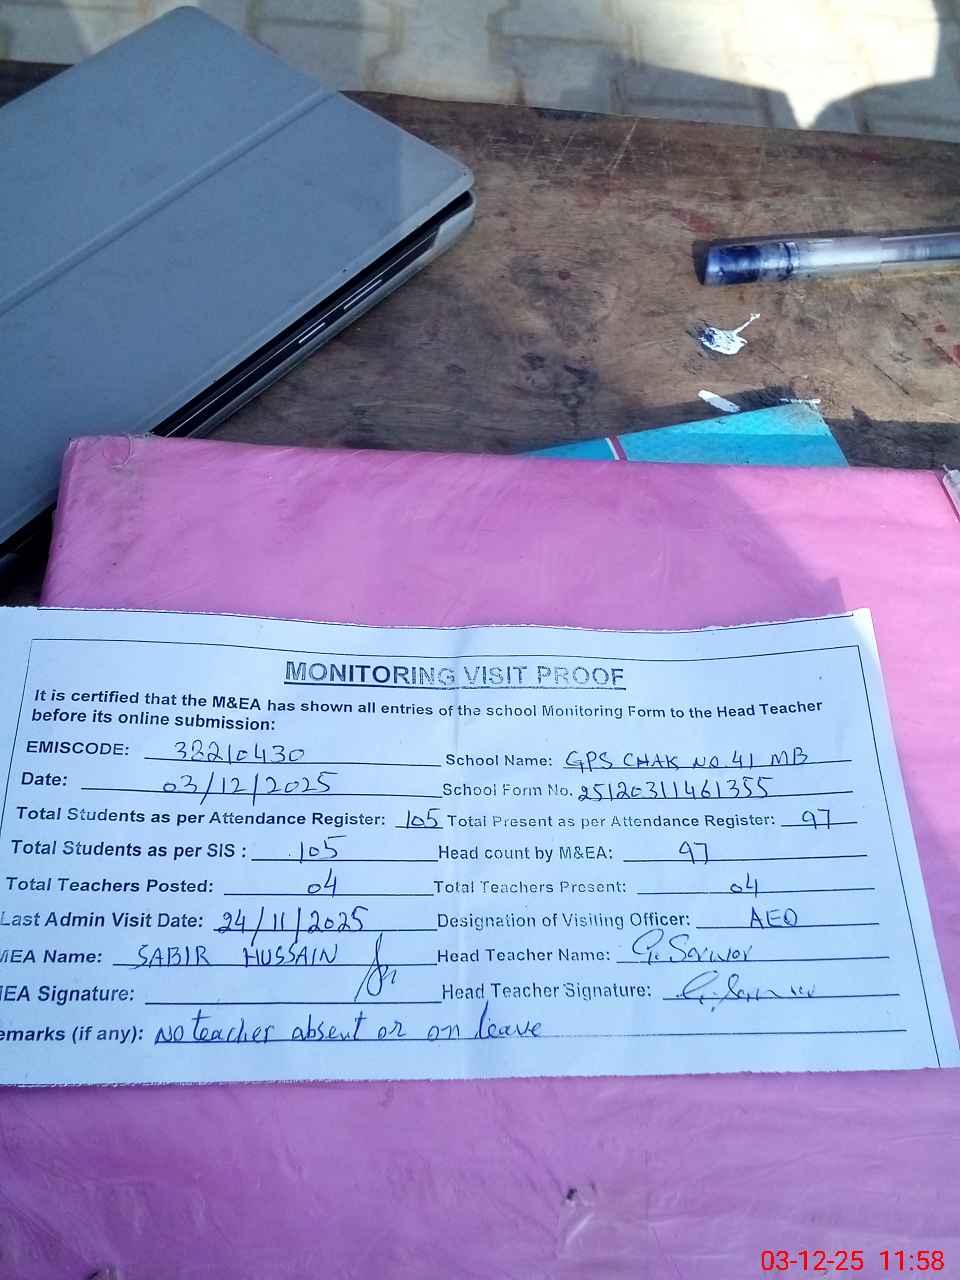 MONITORING VISIT PROOF
It is certified that the M&EA has shown all entries of the school Monitoring Form to the Head Teacher
before its online submission:
EMISCODE: 38210430 School Name: GPS CHAK NO 41 MB
Date: 03/12/2025 School Form No. 25120311461355
Total Students as per Attendance Register: 105 Total Present as per Attendance Register: 97
Total Students as per SIS : 105 Head count by M&EA: 97
Total Teachers Posted: 04 Total Teachers Present: 04
Last Admin Visit Date: 24/11/2025 Designation of Visiting Officer: AEO
MEA Name: SABIR HUSSAIN Head Teacher Name: G. Sarwar
MEA Signature: Head Teacher Signature: G. Sarwar
emarks (if any): No teacher absent or on leave
03-12-25 11:58